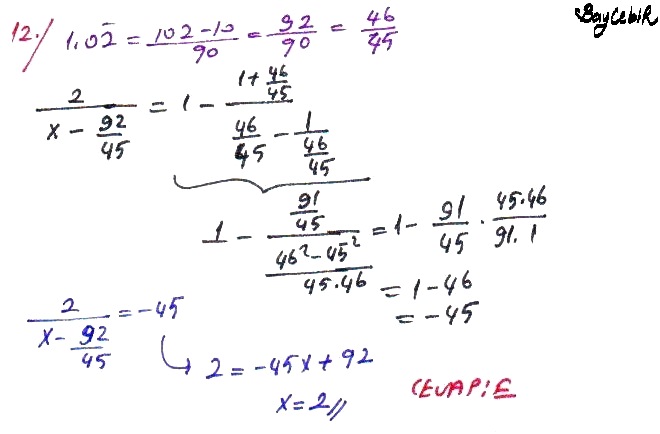 BayCebiR
12./ 1.02̅ = (102-10)/90 = 92/90 = 46/45
2/(x - 92/45) = 1 - (1 + 46/45)/(46/45 - 1/(46/45))
1 - (91/45)/((46² - 45²)/(45.46)) = 1 - 91/45 · (45.46)/(91.1)
= 1 - 46
= -45
2/(x - 92/45) = -45
↳ 2 = -45x + 92
x = 2//
CEVAP: E